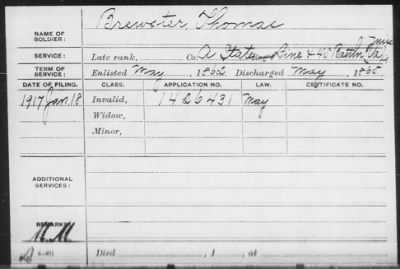 NAME OF SOLDIER: Brewster, Thomas
SERVICE: Late rank, Co. A State Line & 40 Battln
TERM OF SERVICE: Enlisted May, 1862 Discharged May, 1865
DATE OF FILING. CLASS. APPLICATION NO. LAW. CERTIFICATE NO.
1917 Jan. 18 Invalid, 1426431 May
Widow,
Minor,
ADDITIONAL SERVICES:
REMARKS:
Died , 1 , at